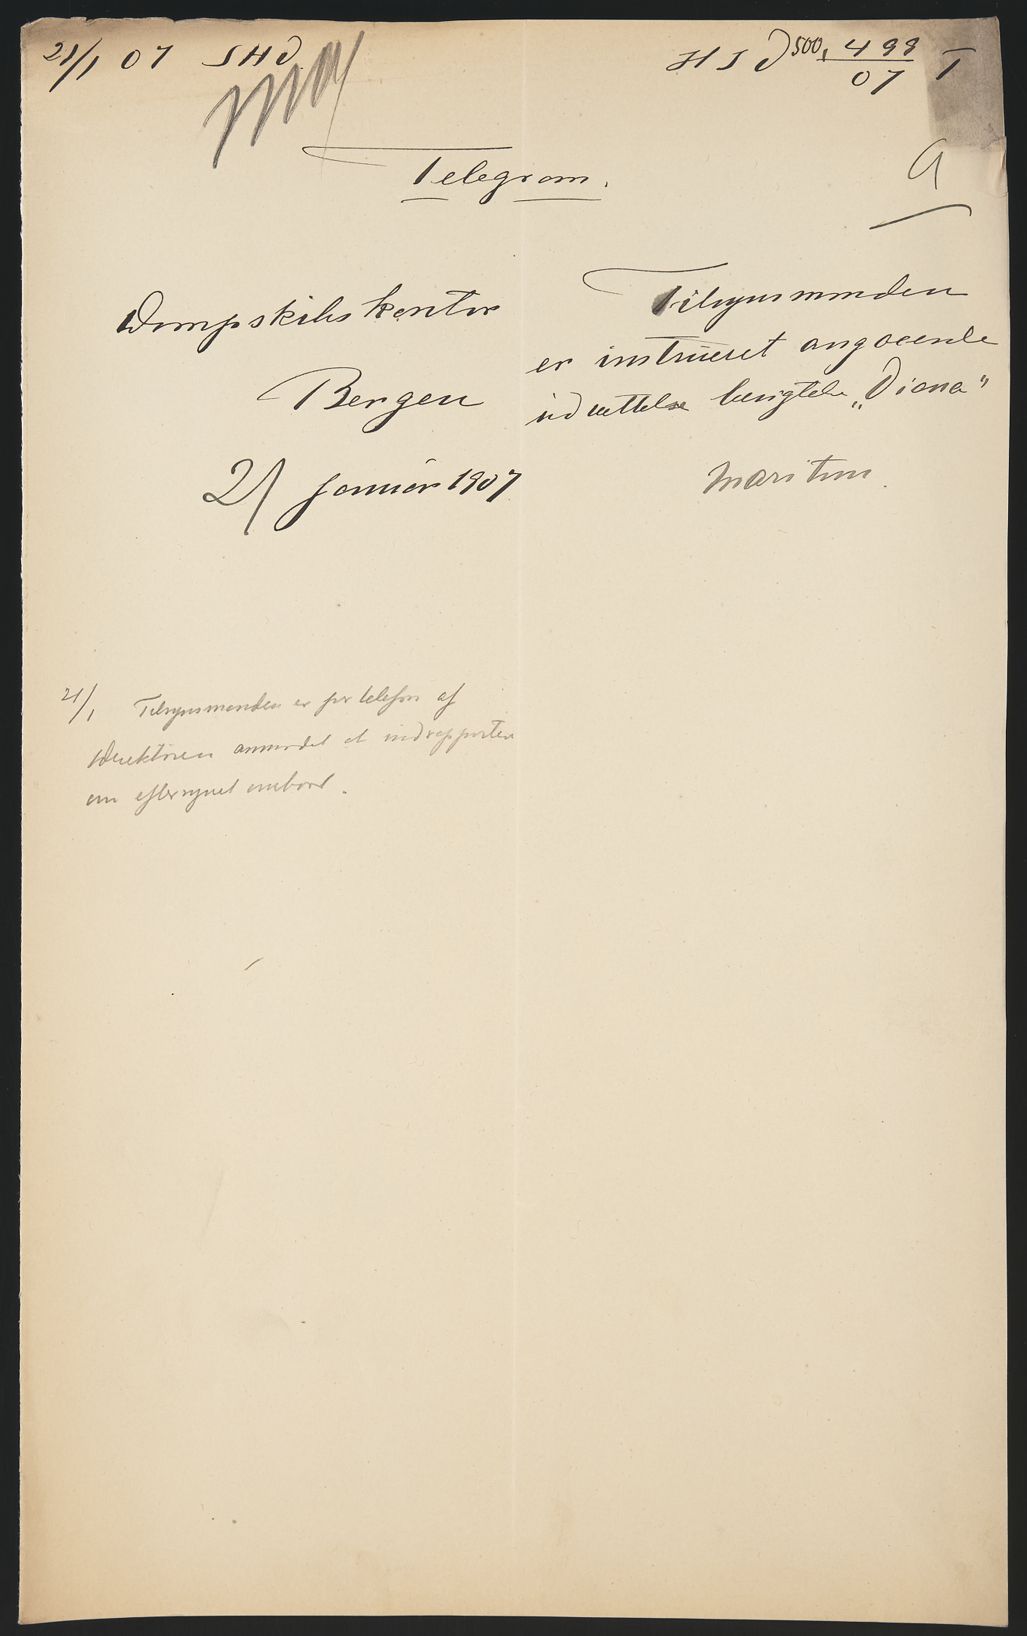 21/1 07 SHD
HSD 500, 498/07 T
Telegram.
Dampskibskontor
Bergen
21 januar 1907
Tilsynsmanden
er instrueret angaaende
udrettelse besigtelse „Diana"
Maritim.
21/1 Tilsynsmanden er per telefon af
Direktøren anmodet at indrapportere
om eftersynet ombord.